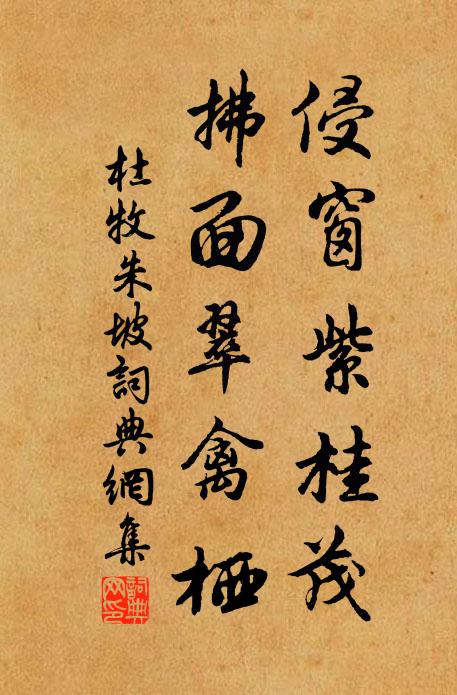 侵窗紫桂茂
拂面翠禽栖
杜牧朱坡詞典網集
詞典網印